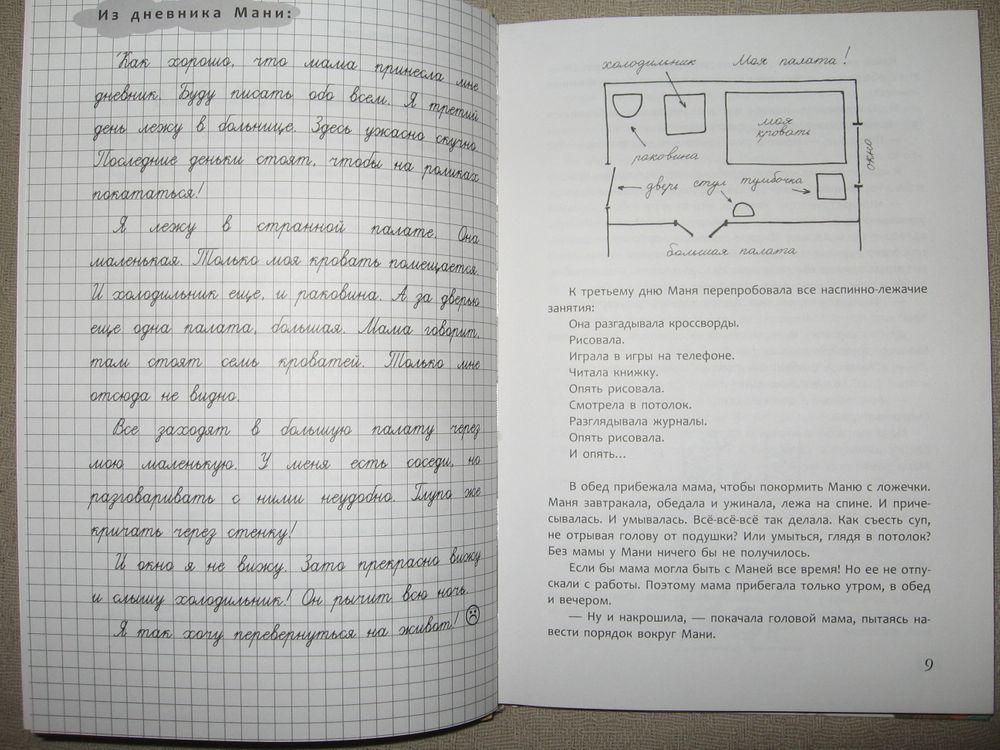 Из дневника Мани:
Как хорошо, что мама принесла мне
дневник. Буду писать обо всем. Я третий
день лежу в больнице. Здесь ужасно скучно.
Последние деньки стоят, чтобы на роликах
покататься!
Я лежу в странной палате. Она
маленькая. Только моя кровать помещается.
И холодильник еще, и раковина. А за дверью
еще одна палата, большая. Мама говорит,
там стоят семь кроватей. Только мне
отсюда не видно.
Все заходят в большую палату через
мою маленькую. У меня есть соседи, но
разговаривать с ними неудобно. Глупо же
кричать через стенку!
И окно я не вижу. Зато прекрасно вижу
и слышу холодильник! Он рычит всю ночь.
Я так хочу перевернуться на живот!
холодильник Моя палата!
моя
кровать
окно
раковина
дверь стул тумбочка
большая палата
К третьему дню Маня перепробовала все наспинно-лежачие
занятия:
Она разгадывала кроссворды.
Рисовала.
Играла в игры на телефоне.
Читала книжку.
Опять рисовала.
Смотрела в потолок.
Разглядывала журналы.
Опять рисовала.
И опять...
В обед прибежала мама, чтобы покормить Маню с ложечки.
Маня завтракала, обедала и ужинала, лежа на спине. И приче-
сывалась. И умывалась. Всё-всё-всё так делала. Как съесть суп,
не отрывая голову от подушки? Или умыться, глядя в потолок?
Без мамы у Мани ничего бы не получилось.
Если бы мама могла быть с Маней все время! Но ее не отпу-
скали с работы. Поэтому мама прибегала только утром, в обед
и вечером.
— Ну и накрошила, — покачала головой мама, пытаясь на-
вести порядок вокруг Мани.
9